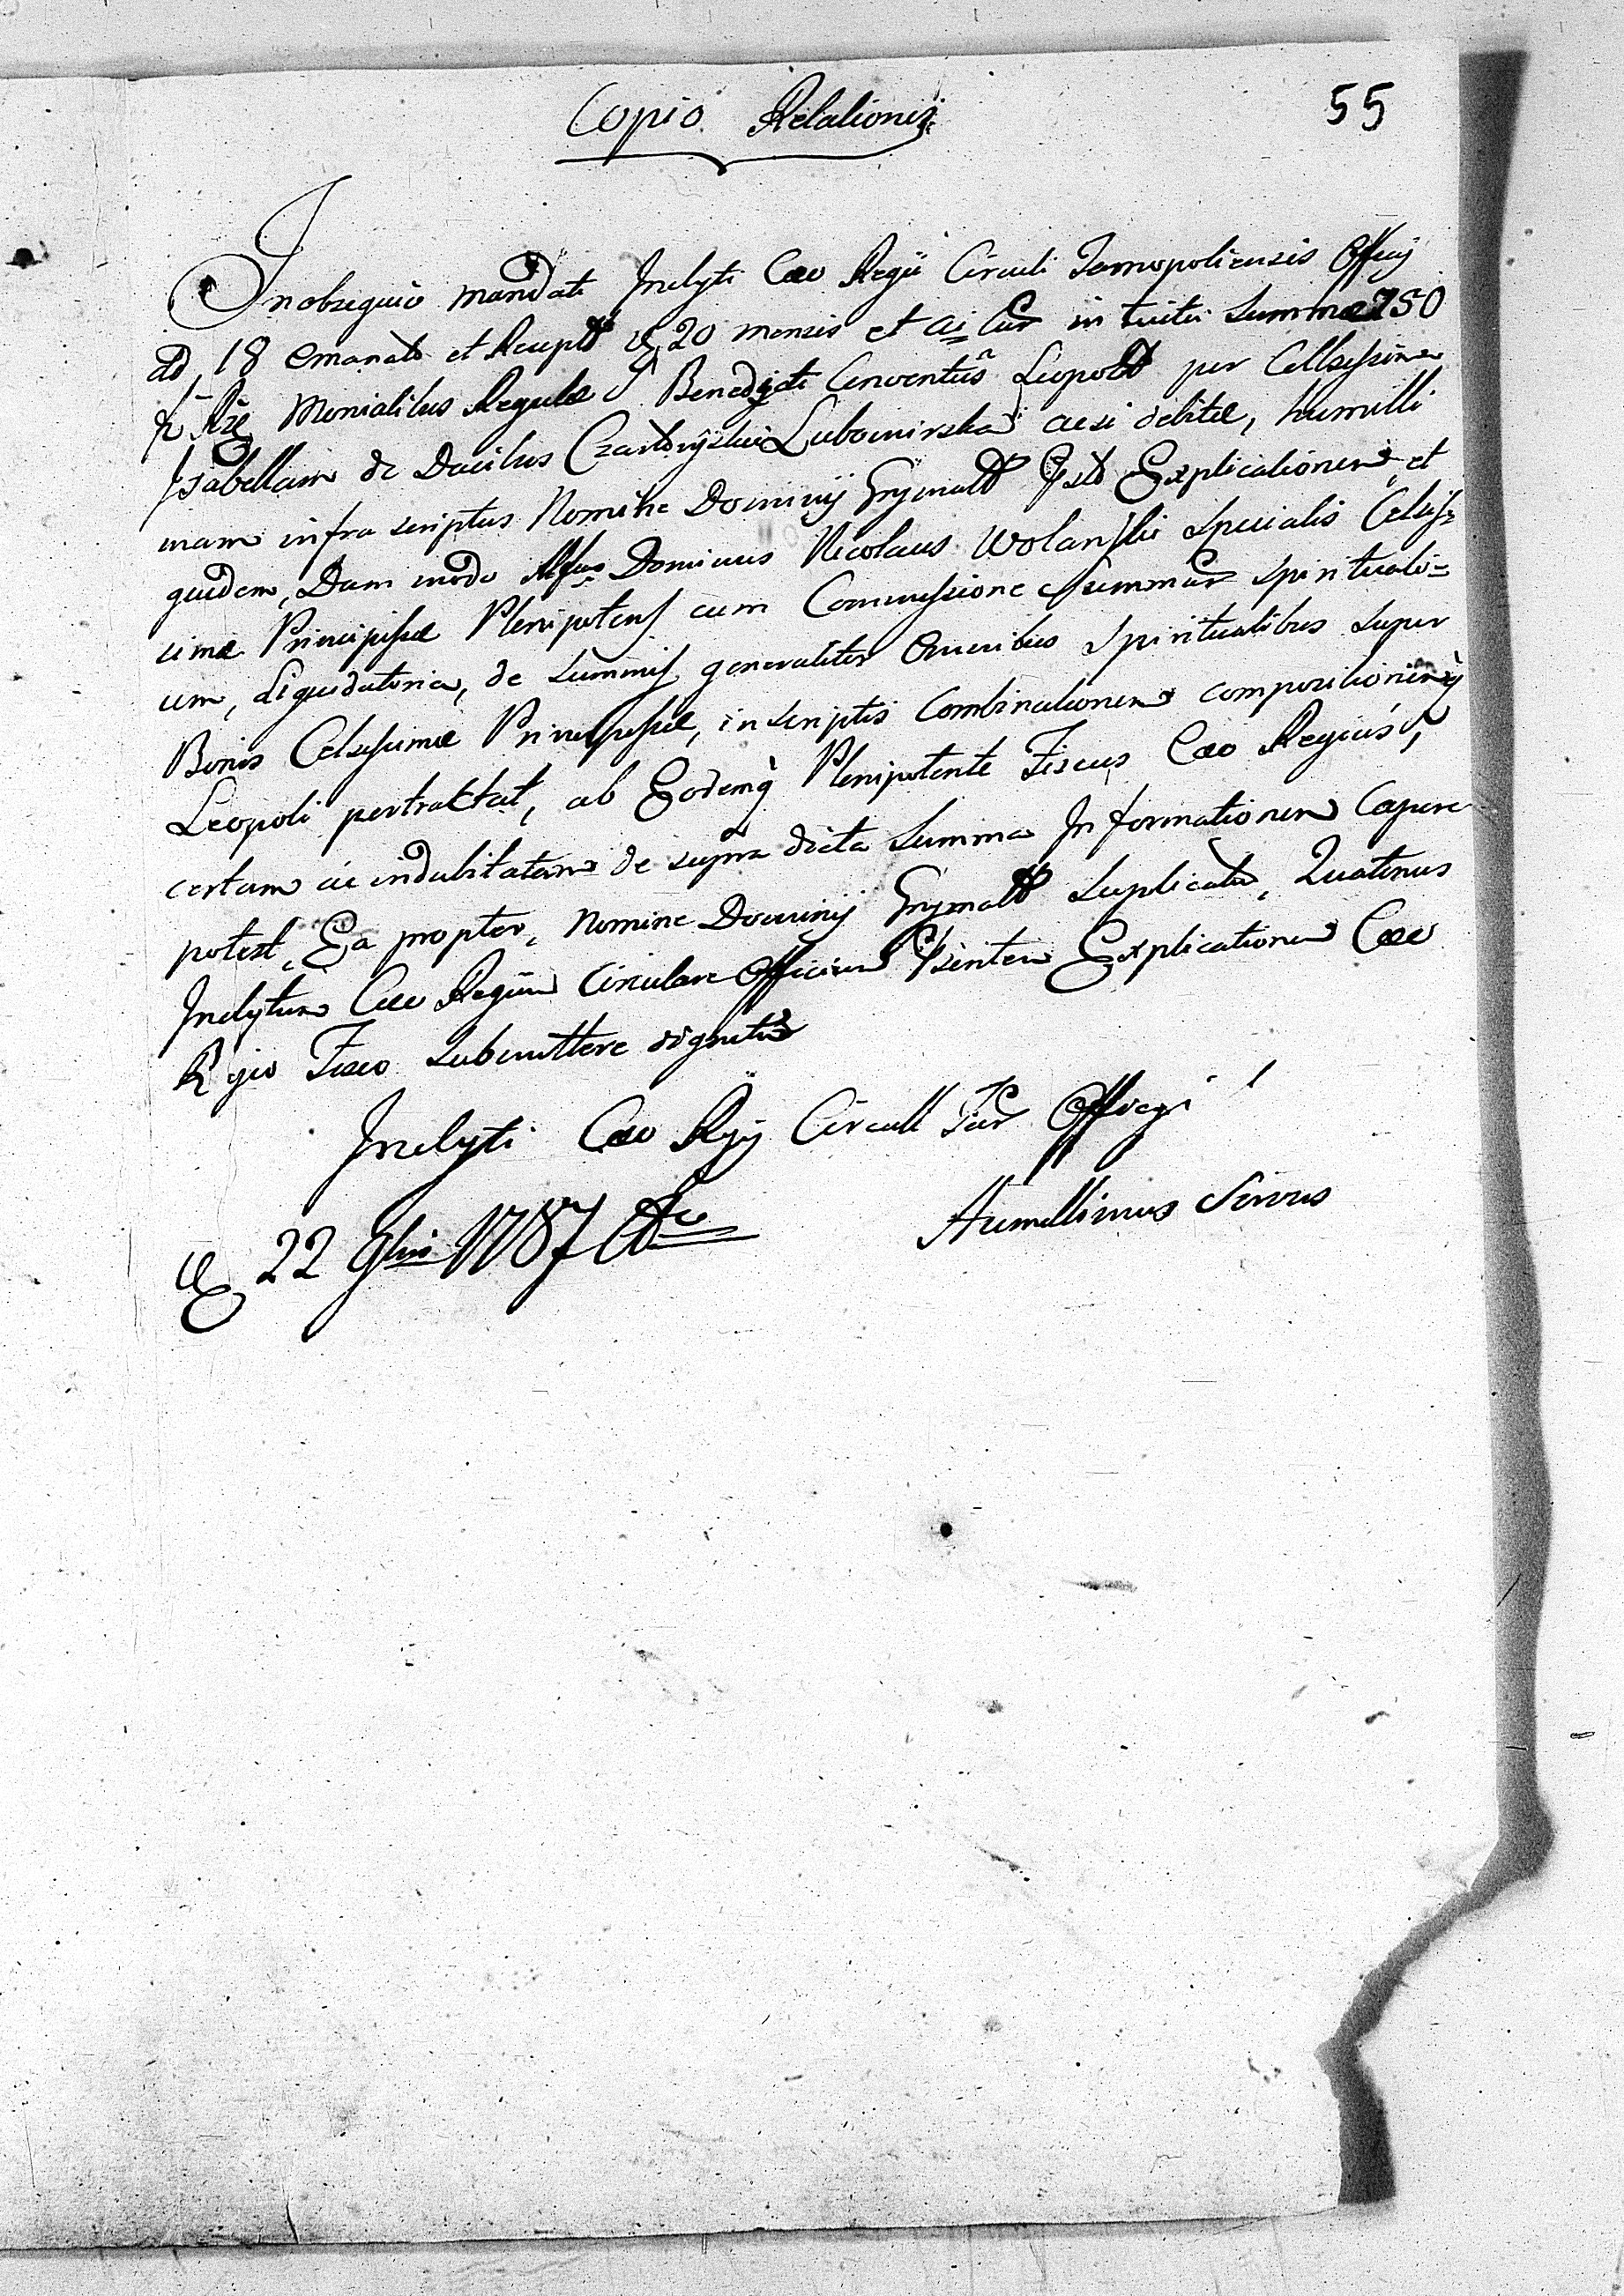 Copia Relationis
55
In obsequio mandati Inclyti Cæo Regii Circuli Tarnopoliensis Officij
dd 18 emanati et Recepti 20 mensis et ai Cur intuitu Summæ 750
Monialibus Regulæ S Benedicti Conventus Leopoli per Cellsissima
Isabellam de Ducibus Czartoryskie Lubomirska debitæ, humilli
mam infra scriptus Nomine Dominij Grymall Explicationem et
quidem, Dum modo Dominus Nicolaus Wolański Specialis Celsiss
imæ Principissæ Plenipotens cum Commissione Summar Spirituali=
um, Liquidatoria, de Summis generaliter Oneribus Spiritualibus super
Bonis Celsissimæ Principissæ, inscriptis Combinationem compositionemq̀
Leopoli pertractat, ab Eodemq̀ Plenipotente Fiscus Cæo Regius,
certam ac indubitatam de supra dicta Summa Informationem Capere
potest, Ea propter, Nomine Dominij Grymall Suplicatur, Quatenus
Inclytum Cæo Regium Circulare Officium Psentem Explicationem Cæo
Regio Fisco Submittere dignetur
Inclyti Cæo Rgij Circull Tar Officij
22 9bris 1787
Humillimus Servus